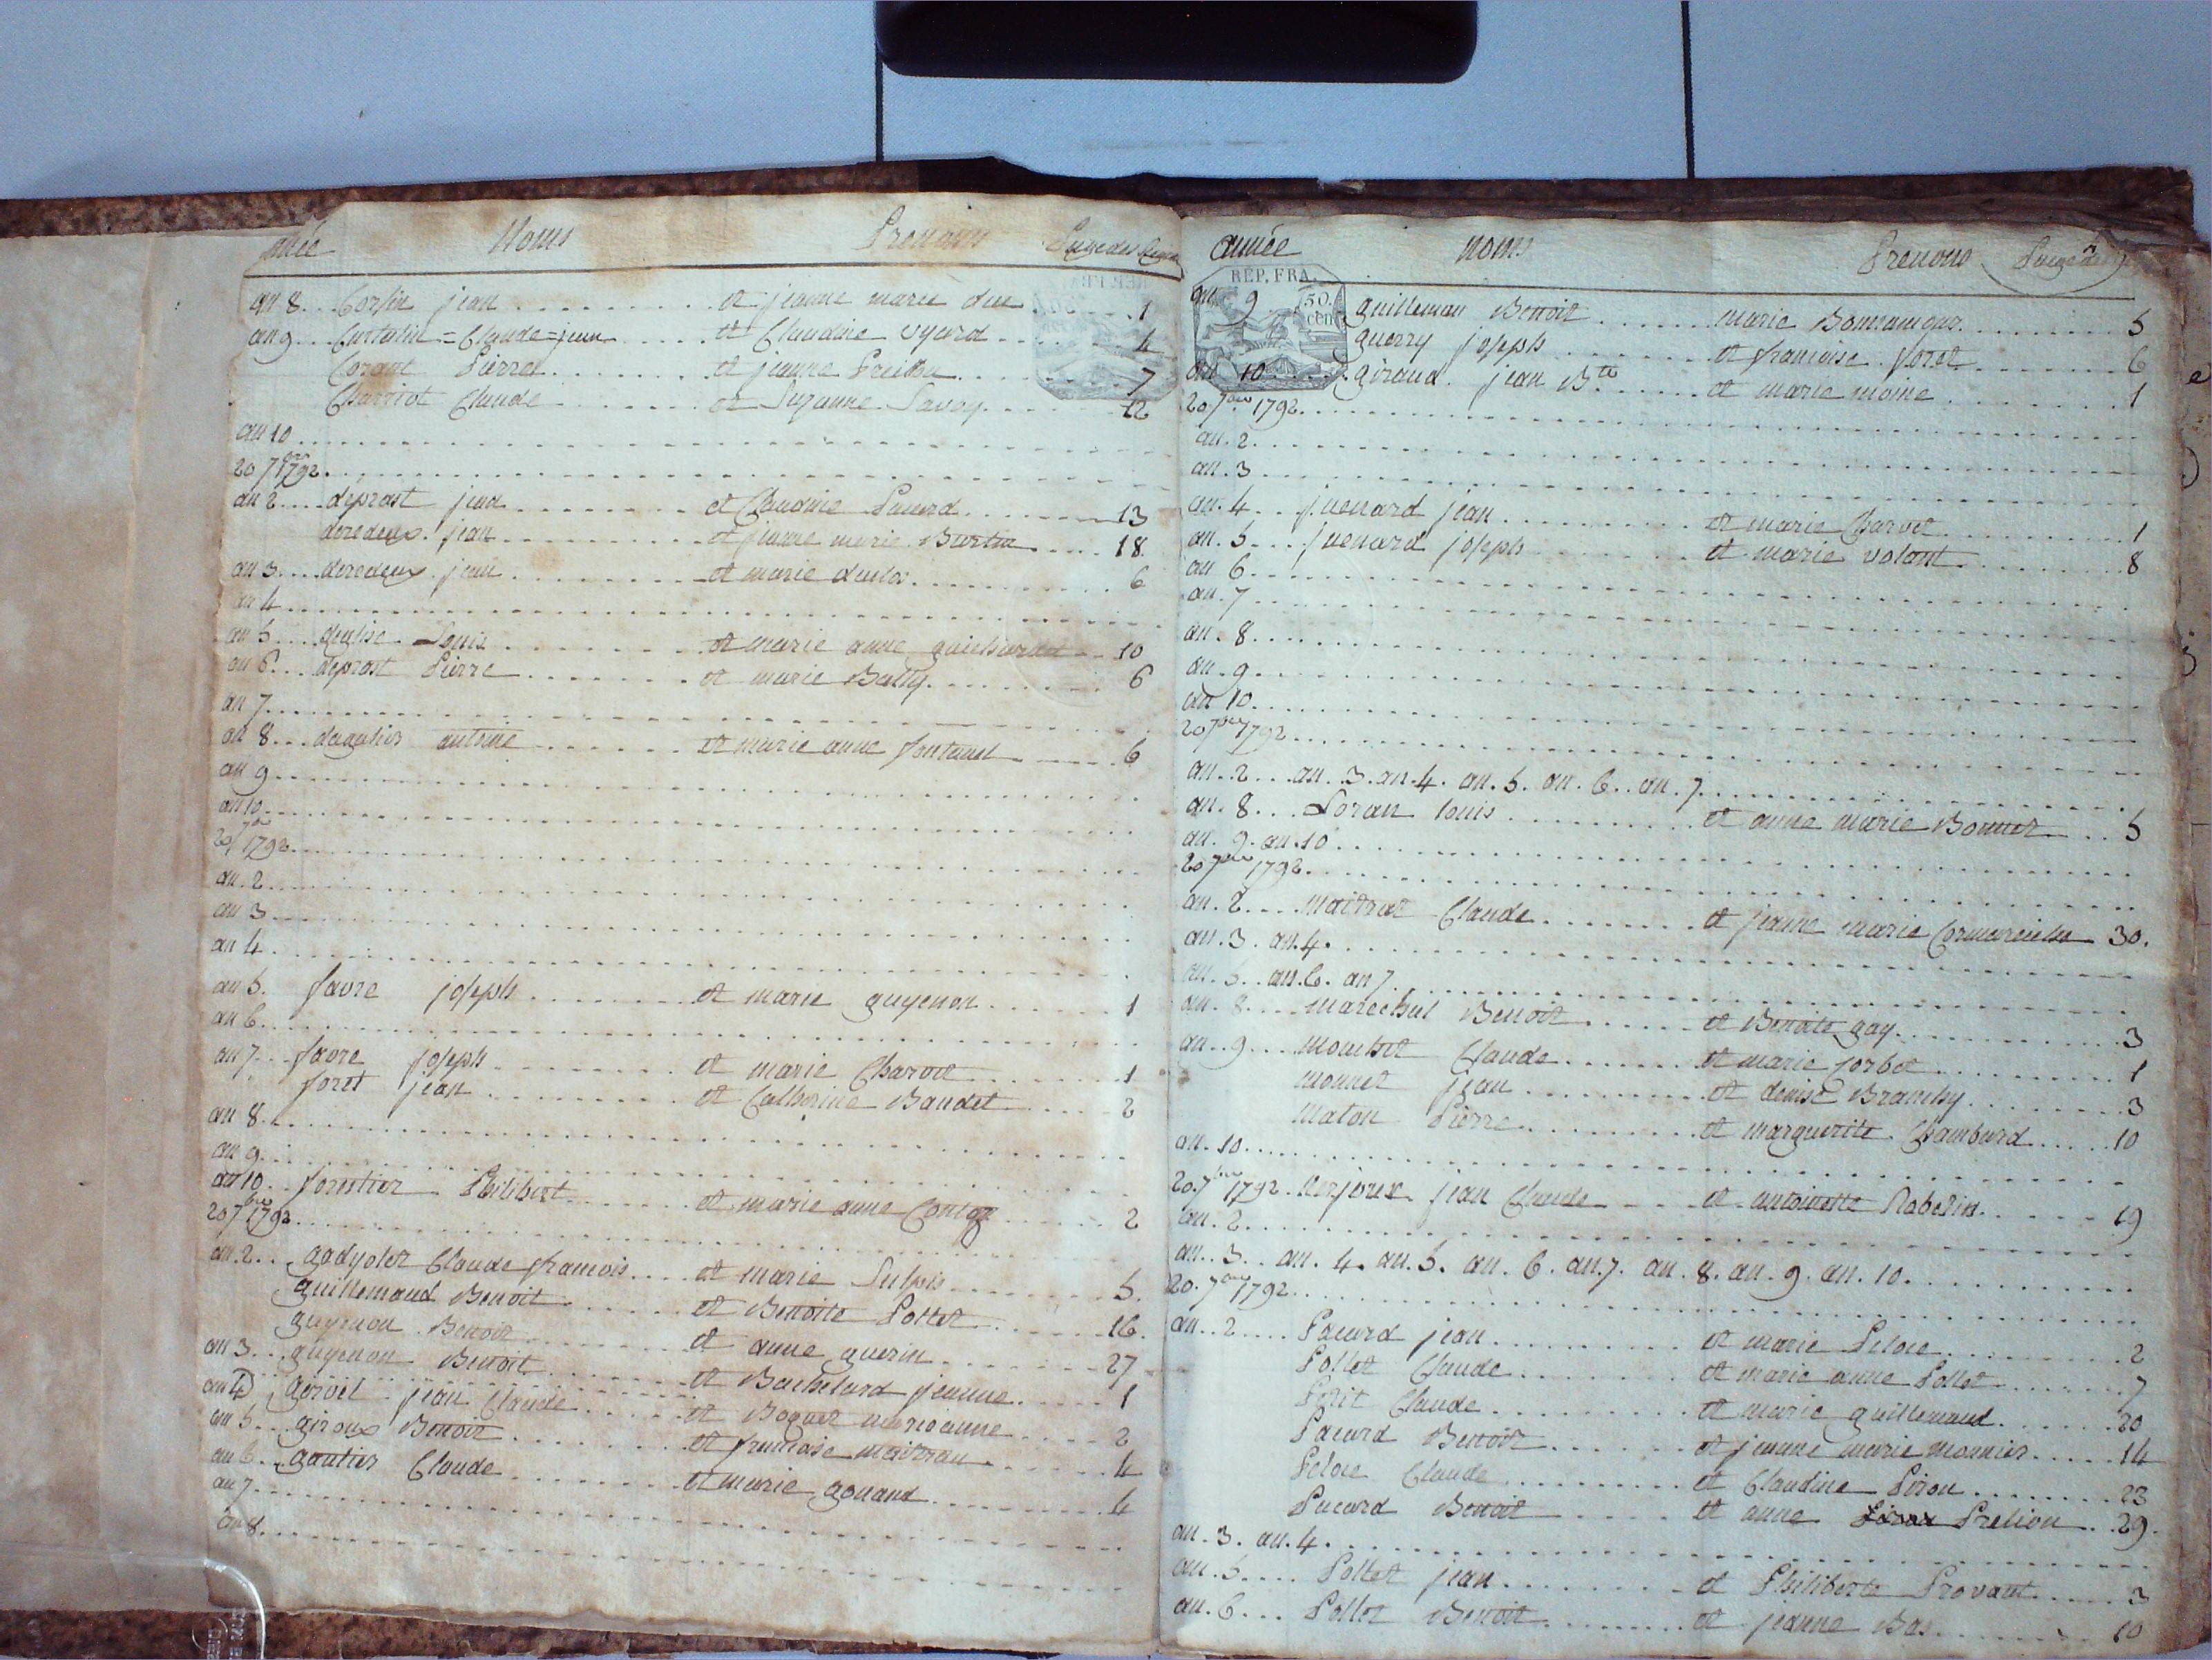 année Noms Prenoms
an 8 .. Corsin jean et jeanne marie duc 1
an 9 .. Curtalin = Claude = jean et Claudine uyard 4
Corant Pierre et jeanne 7
Charriot Claude et Suzanne Savoy 12
an 10
20 7bre 1792
an 2 .... deprast jean et Claudine Pacard 13
deredeux jean et jeanne marie Burtin 18
an 3 .... deredeux jean et marie 6
an 4
an 5 ... Louis et marie anne 10
an 6 ... deprast Pierre et marie Batty 6
an 7
an 8 ... dagalier antoine et marie anne fontanel 6
an 9
an 10
20 7bre 1792
an. 2
an 3
an 4
an 5. favre joseph et marie guyenon 1
an 6
an 7 .. favre joseph et marie Charvet 1
foret jean et Catherine Baudet 2
an 8
an 9
an 10 .. forestier Philibert et marie anne 2
20 7bre 1792
an. 2 .. Claude francois et marie Sulpis 5.
guillemaud Benoit et Benoite Pollet 16.
guyenon Benoit et anne guerin 27
an 3 .. guyenon Benoit et Bachelard jeanne 1
an 4 gervet jean Claude et Boguet marie anne 2
an 5 .. giroux Benoit et francoise maitran 4
an 6 .. gautier Claude et marie gonand 4
an 7
an 8
année Noms Prenoms
REP. FRA.
50.
cen
an 9 guilleman Benoit marie Bonnamour 5
guerry joseph et francoise foret 6
an 10 giraud jean Bte et marie moine 1
20 7bre 1792
an. 2
an. 3
an. 4 .. juenard jean et marie Charvet 1
an. 5 ... juenard joseph et marie volant 8
an 6
an. 7
an. 8
an. 9
an 10
20 7bre 1792
an. 2 ... an. 3. an. 4. an. 5. an. 6. an. 7
an. 8 ... Loran louis et anne marie Bonnet 5
an. 9. an. 10
20 7bre 1792
an. 2 .... maitrat Claude et jeanne marie 30.
an. 3. an. 4.
an. 5. an. 6. an 7
an. 8 .... marechal Benoit et Benoite gay 3
an. 9 ... Claude et marie jorbet 1
monnet jean et denise Branchy 3
maton Pierre et marguerite Chambard 10
an. 10
20. 7bre 1792. jean Claude et antoinette Rabelin 19
an. 2
an. 3 .. an. 4. an. 5. an. 6. an. 7. an. 8. an. 9. an. 10.
20. 7bre 1792
an. 2 .... Pacard jean et marie Peloce 2
Pollet Claude et marie anne Pollet 7
Petit Claude et marie guillemaud 20
Pacard Benoit et jeanne marie monnier 14
Peloce Claude et Claudine Piron 23
Pacard Benoit et anne Prelion 29.
an. 3. an. 4.
an. 5 .... Pollet jean et Philiberte Provant 3
an. 6 ... Pollet Benoit et jeanne Bas 10